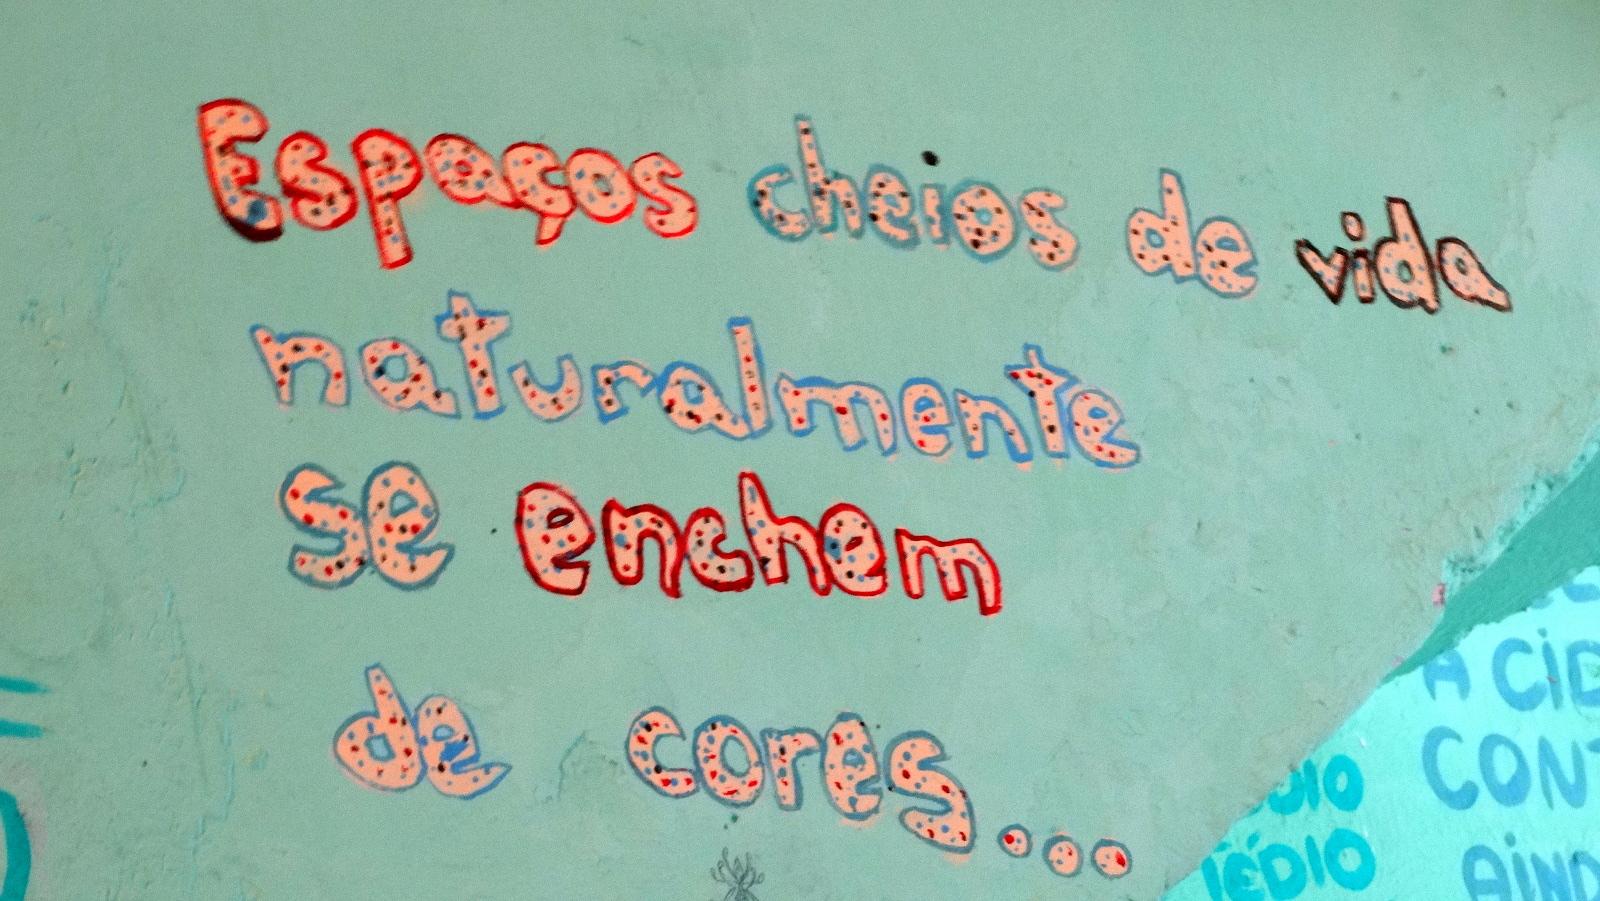 Espaços cheios de vida
naturalmente
se enchem
de cores...
A CID
CONT
AIND